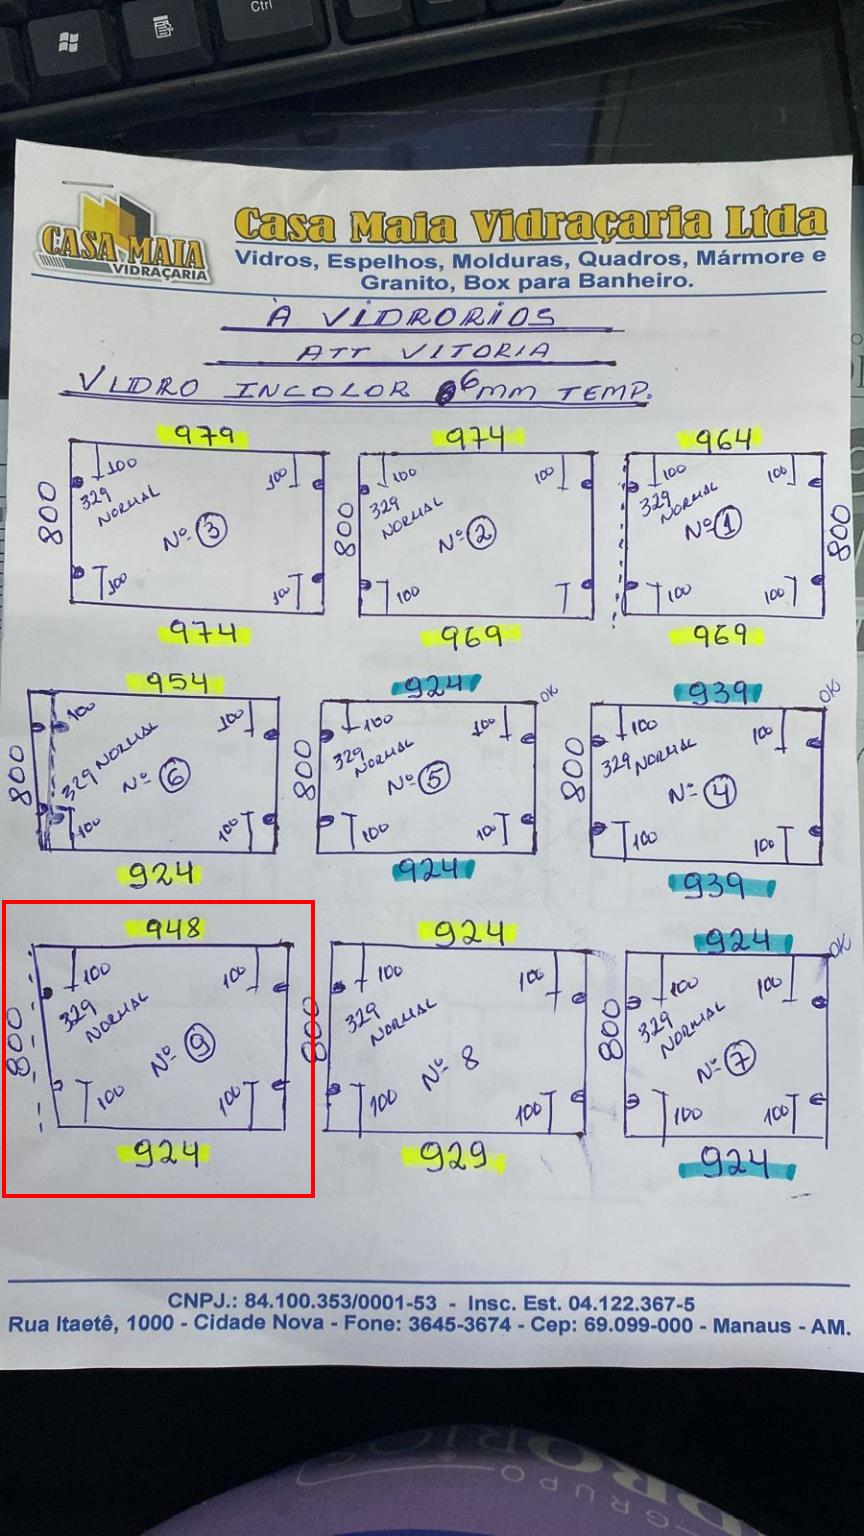 Ctrl
CASA MAIA
VIDRAÇARIA
Casa Maia Vidraçaria Ltda
Vidros, Espelhos, Molduras, Quadros, Mármore e
Granito, Box para Banheiro.
À VIDRORIOS
ATT VITORIA
VIDRO INCOLOR 6mm TEMP.
979 974 964
100 100 100 100 100 100
800 329 NORMAL 800 329 NORMAL 329 NORMAL 800
Nº 3 Nº 2 Nº 1
100 100 100 100 100
974 969 969
954 924 OK 939 OK
100 100 100 100 100 100
800 329 NORMAL 800 329 NORMAL 800 329 NORMAL
Nº 6 Nº 5 Nº 4
100 100 100 100 100 100
924 924 939
948 924 924 OK
100 100 100 100 100 100
800 329 NORMAL 800 329 NORMAL 800 329 NORMAL
Nº 9 Nº 8 Nº 7
100 100 100 100 100 100
924 929 924
CNPJ.: 84.100.353/0001-53 - Insc. Est. 04.122.367-5
Rua Itaetê, 1000 - Cidade Nova - Fone: 3645-3674 - Cep: 69.099-000 - Manaus - AM.
GRUPO